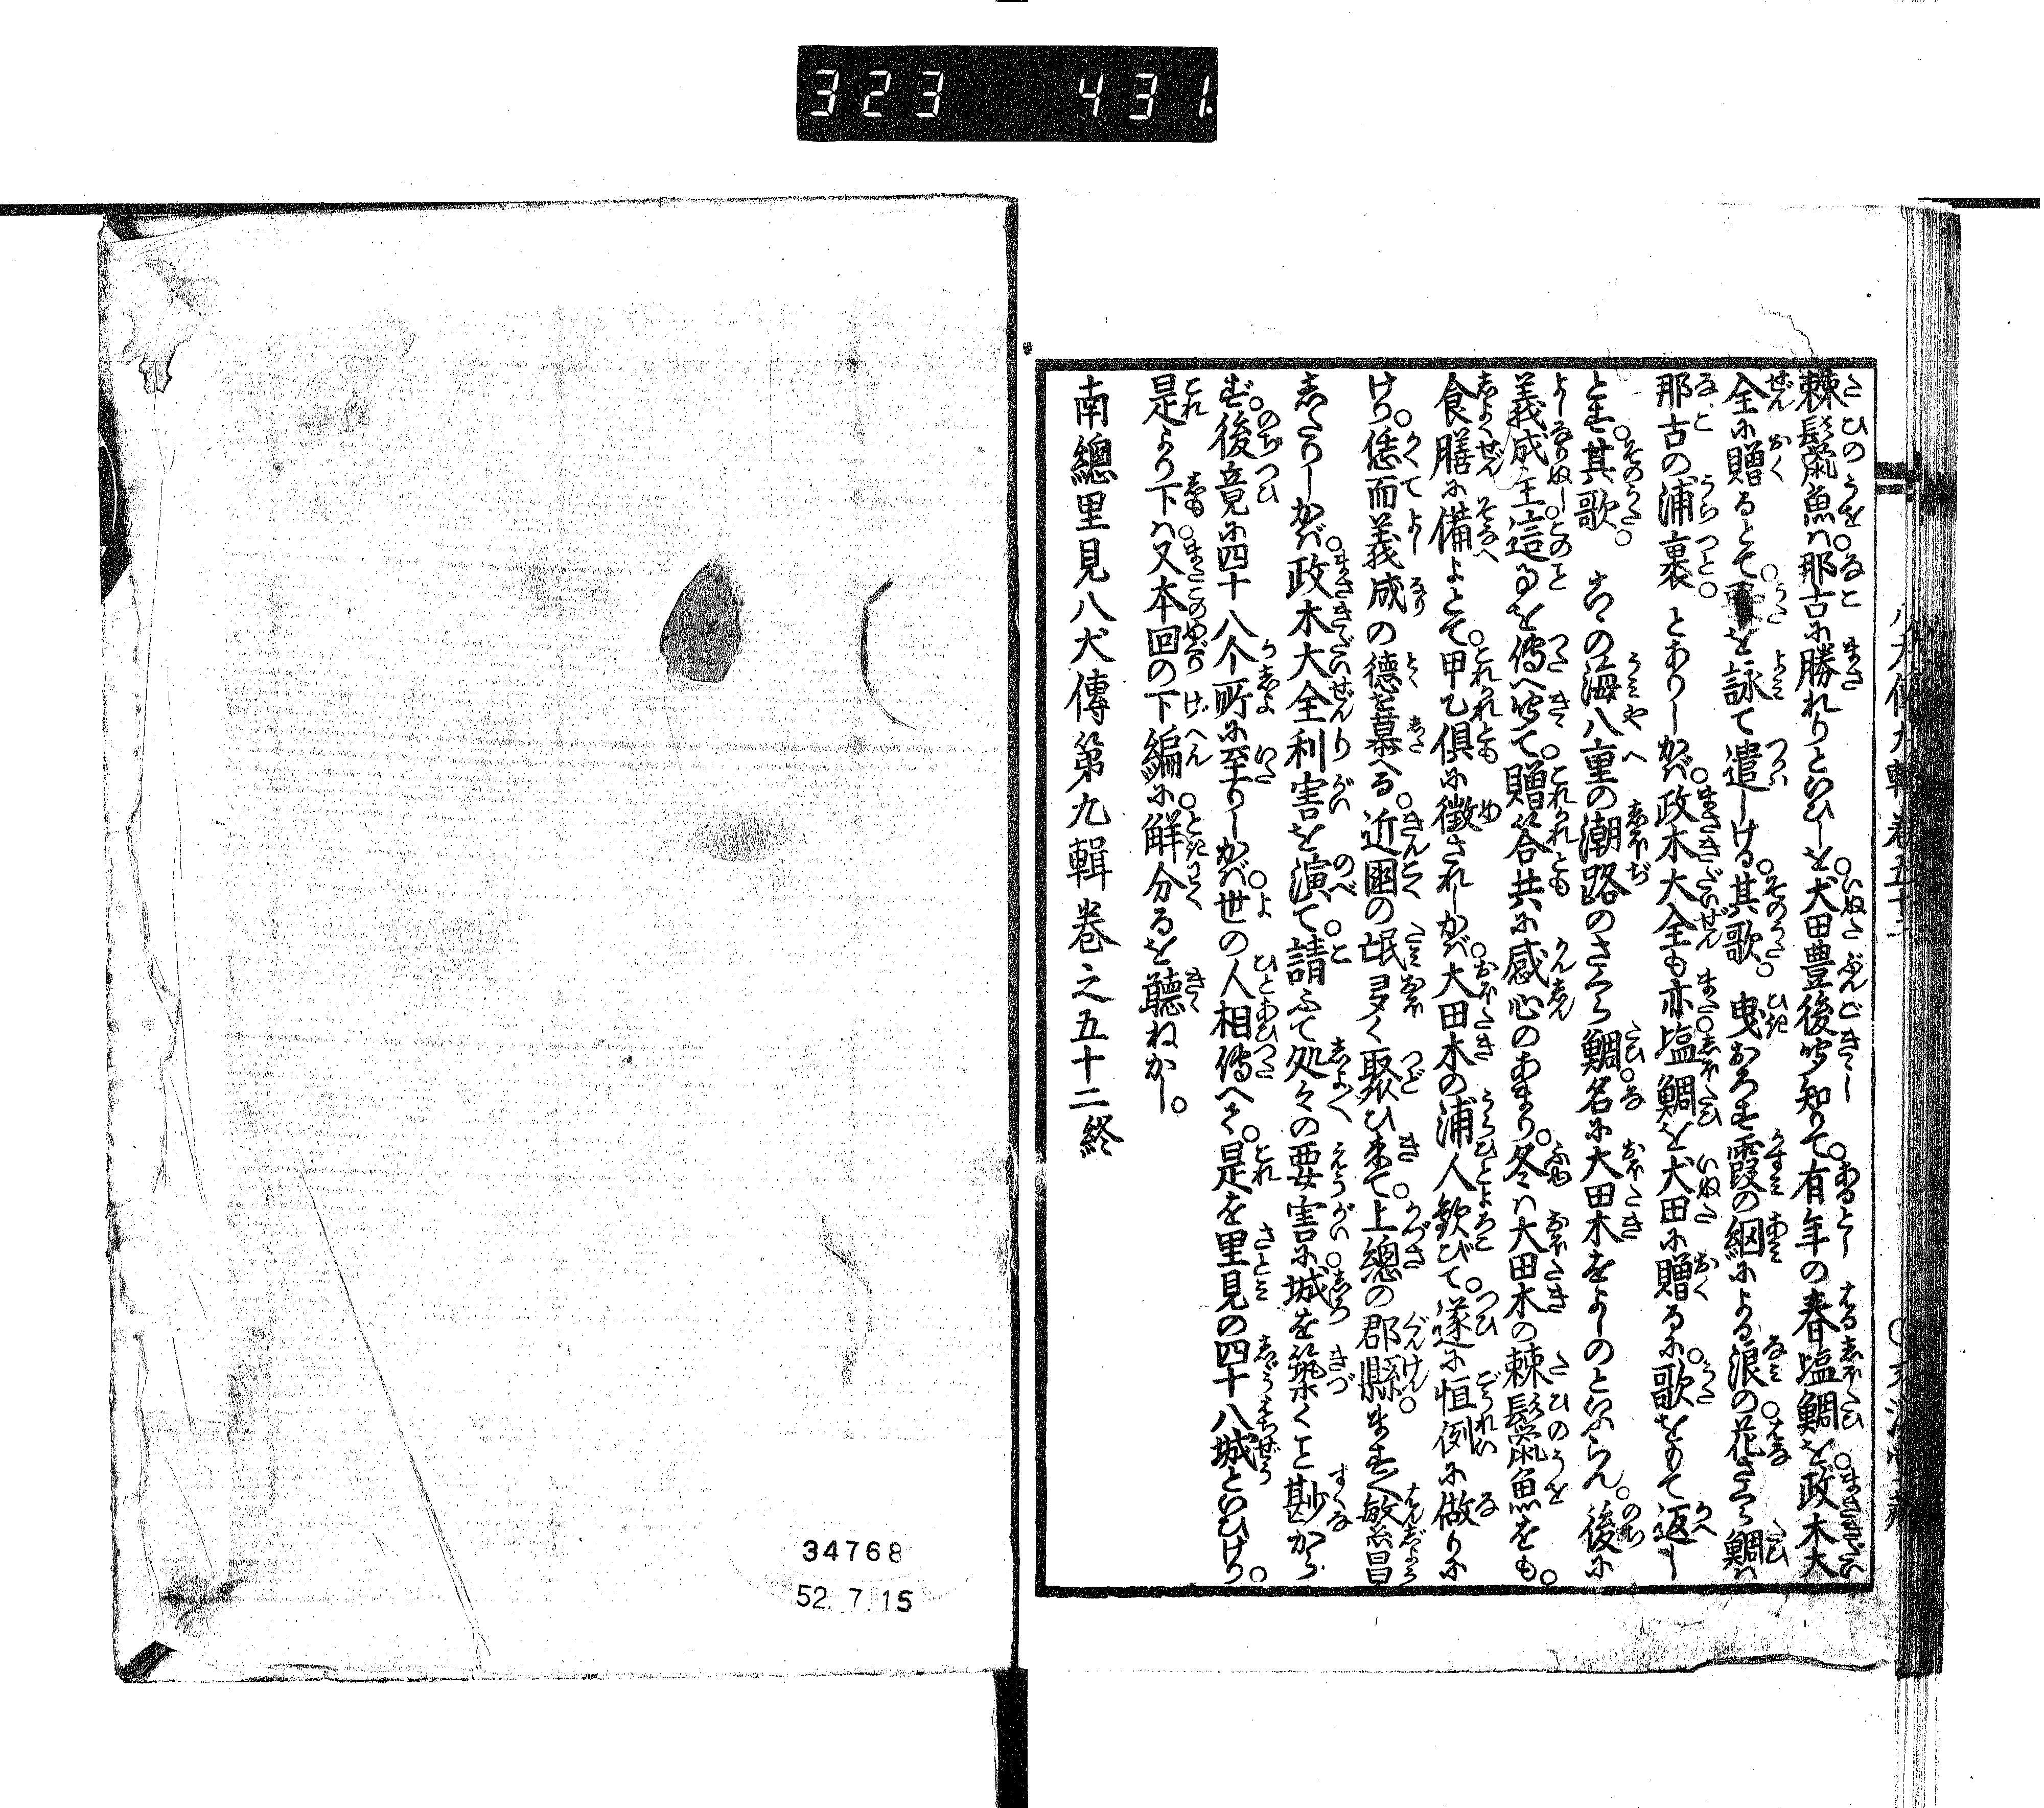 323 431
棘鬛魚ハ那古に勝れりといひしを犬田豊後吹知りて有年の春塩鯛を政木大
全に贈るとて歌を詠て遣しける其歌。曳おろす霞の網による浪の花さくら鯛ハ
那古の浦裹 とありしかバ政木大全も亦塩鯛を犬田に贈るに歌をもて返し
とす其歌。 安房の海八重の潮路のさくら鯛名に大田木をよしのといふらん。後に
義成主這事を傳へ聞て贈答共に感心のあまり冬ハ大田木の棘鬛魚をも。
食膳に備よとて甲乙倶に徴されしかバ大田木の浦人歓びて遂に恒例に做りに
けり。恁而義成の徳を慕へる近國の民多く聚ひ来て上總の郡縣ますます敏昌
したりしかバ政木大全利害を演て請ふて処々の要害に城を築くこと尠から
ず。後竟に四十八个所に至りしかバ世の人相傳へて。是を里見の四十八城といひけり。
是より下ハ又本回の下編に觧分るを聽ねかし。
南總里見八犬傳第九輯巻之五十二終
34768
52.7.15